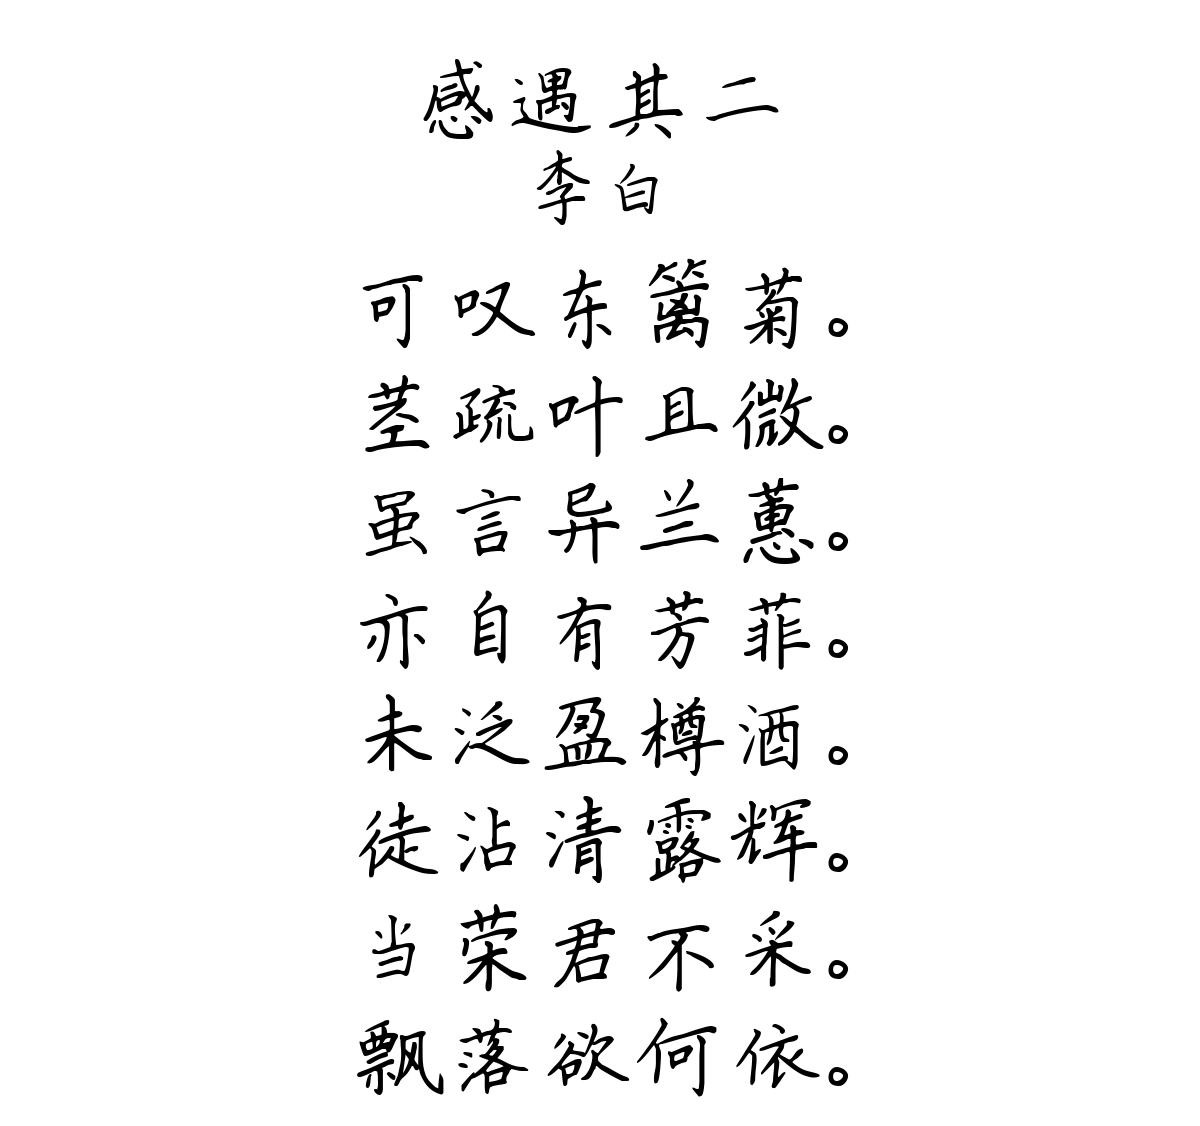 感遇其二
李白
可叹东篱菊。
茎疏叶且微。
虽言异兰蕙。
亦自有芳菲。
未泛盈樽酒。
徒沾清露辉。
当荣君不采。
飘落欲何依。